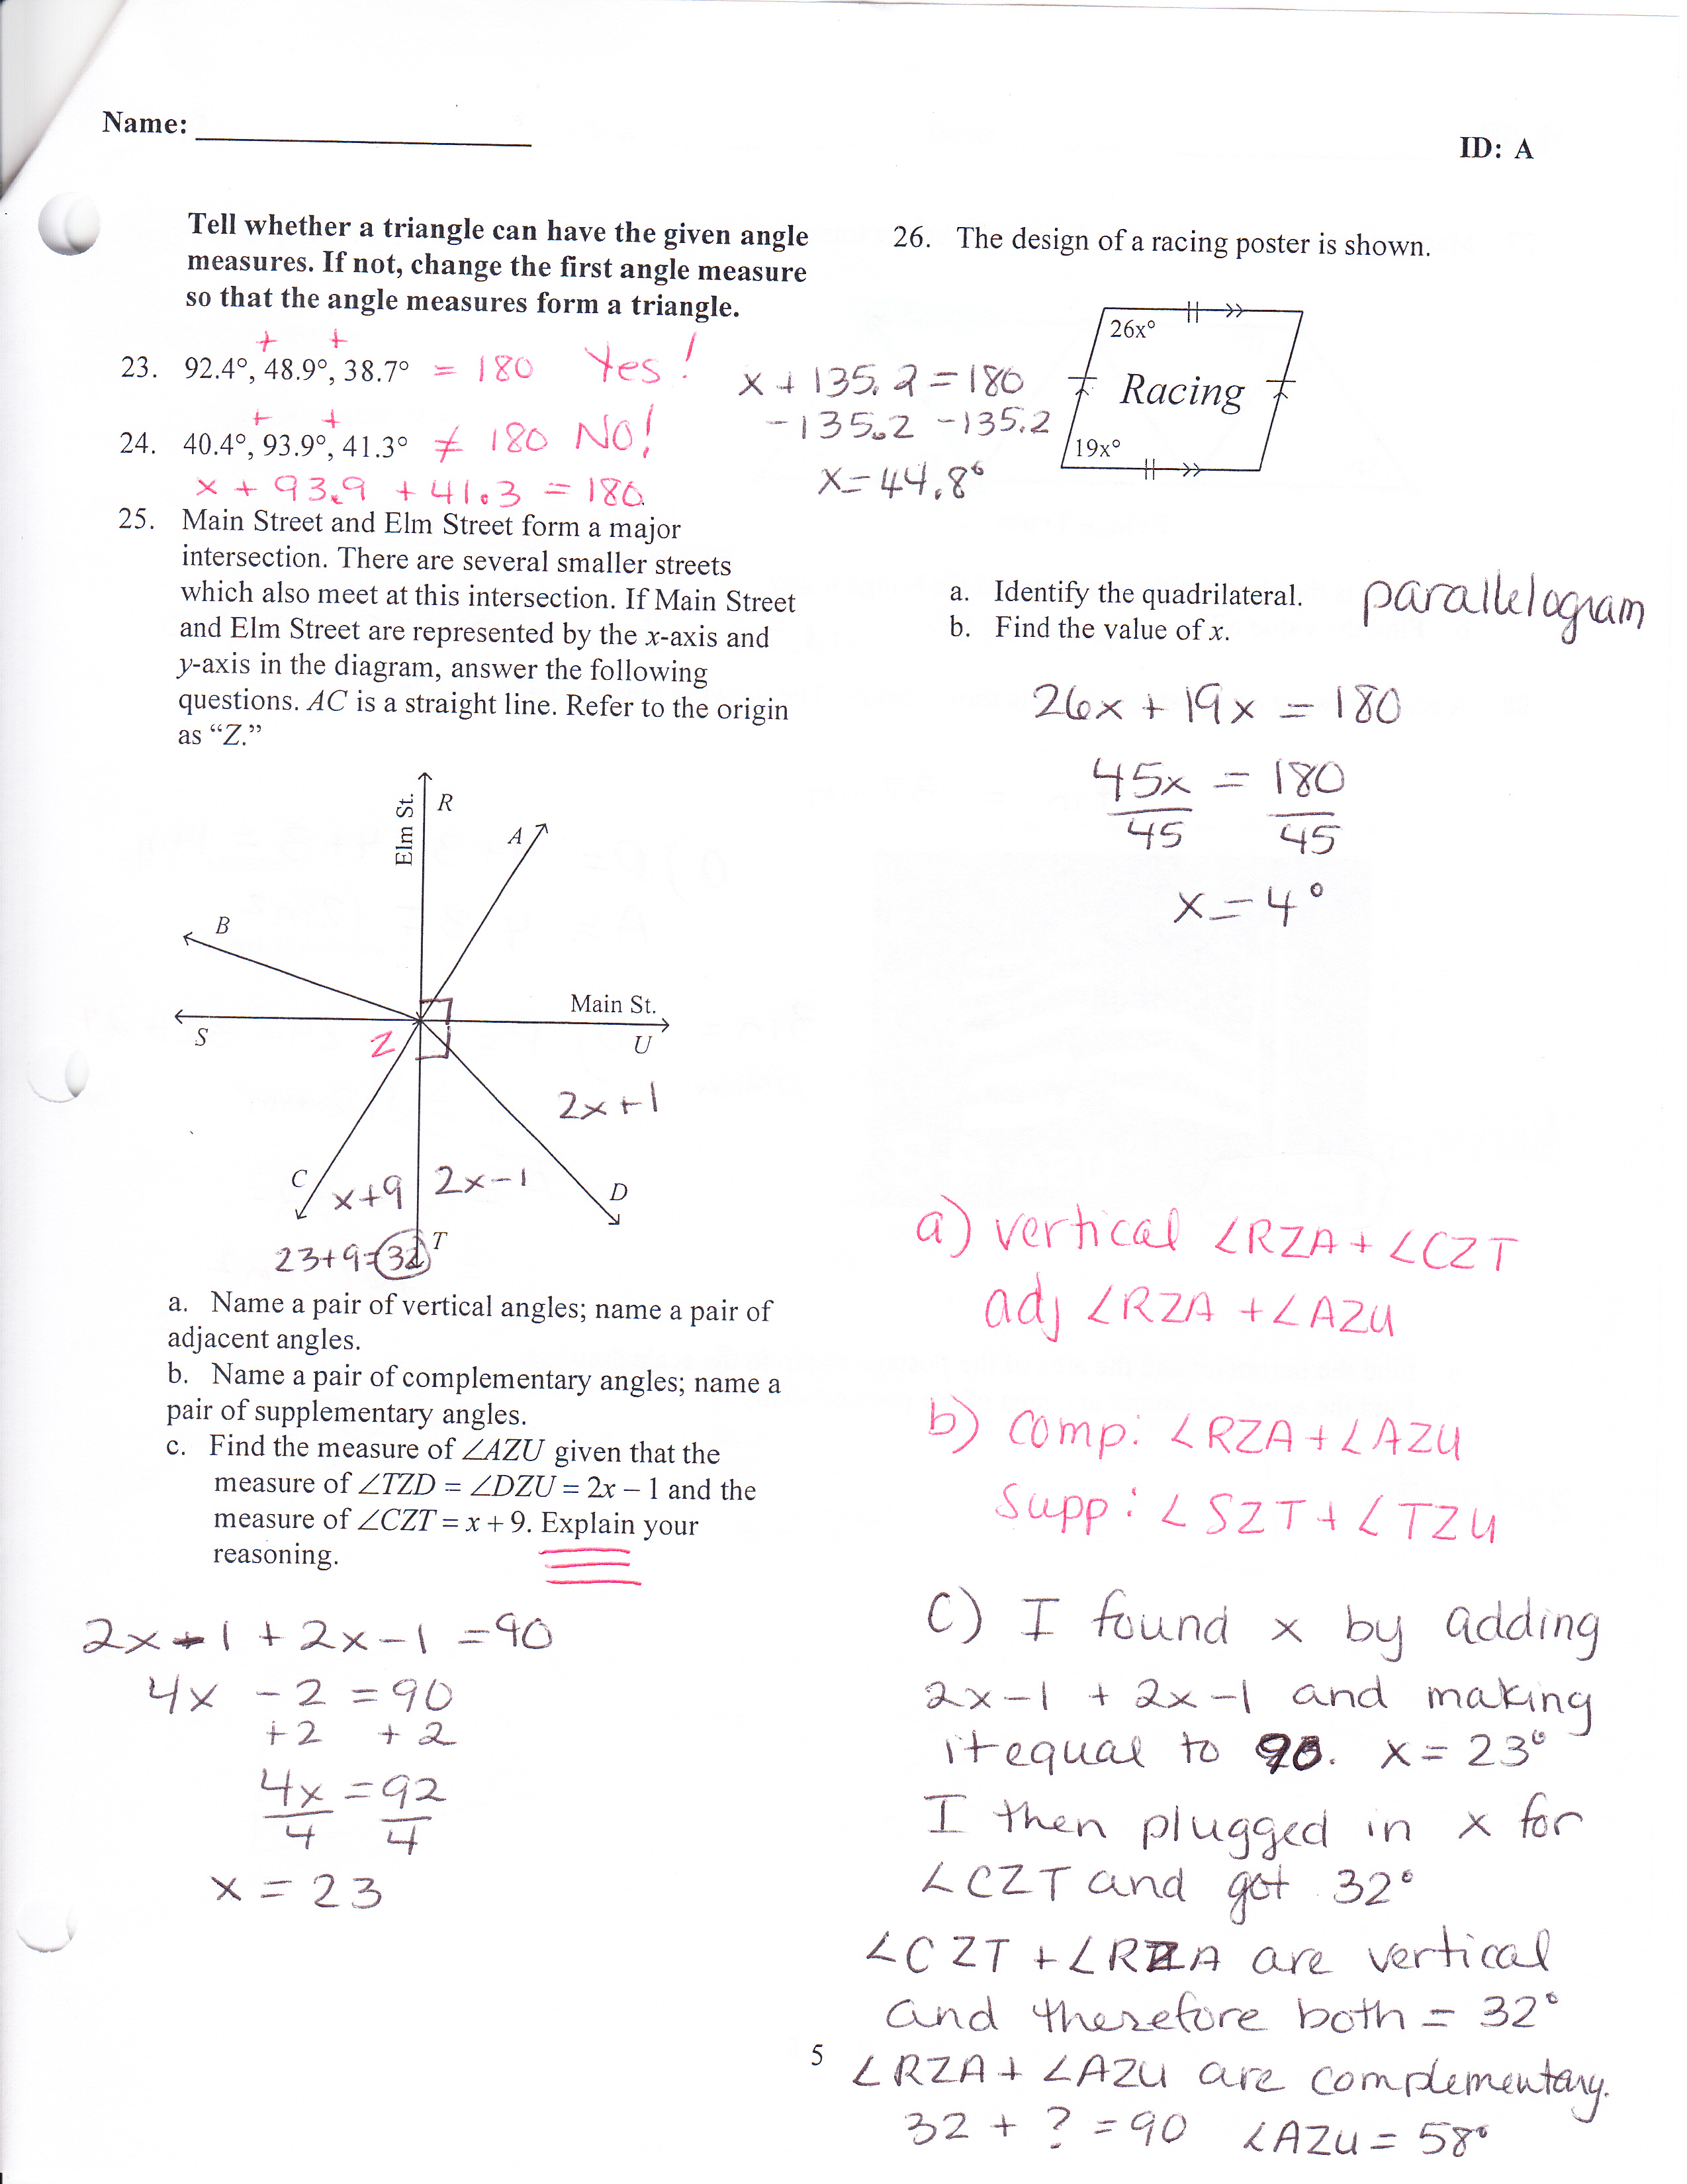 Name:
ID: A
Tell whether a triangle can have the given angle
measures. If not, change the first angle measure
so that the angle measures form a triangle.
+ +
23. 92.4°, 48.9°, 38.7° = 180 Yes!
+ +
24. 40.4°, 93.9°, 41.3° ≠ 180 NO!
x + 93.9 + 41.3 = 180
x + 135.2 = 180
-135.2 -135.2
x = 44.8°
25. Main Street and Elm Street form a major
intersection. There are several smaller streets
which also meet at this intersection. If Main Street
and Elm Street are represented by the x-axis and
y-axis in the diagram, answer the following
questions. AC is a straight line. Refer to the origin
as “Z.”
Elm St.
R
A
B
Main St.
S
Z
U
2x+1
C
x+9
2x-1
D
T
23+9=32
a. Name a pair of vertical angles; name a pair of
adjacent angles.
b. Name a pair of complementary angles; name a
pair of supplementary angles.
c. Find the measure of ∠AZU given that the
measure of ∠TZD = ∠DZU = 2x – 1 and the
measure of ∠CZT = x + 9. Explain your
reasoning.
2x-1 + 2x-1 = 90
4x - 2 = 90
+2 +2
4x = 92
4 4
x = 23
26. The design of a racing poster is shown.
26x°
Racing
19x°
a. Identify the quadrilateral. parallelogram
b. Find the value of x.
26x + 19x = 180
45x = 180
45 45
x = 4°
a) vertical ∠RZA + ∠CZT
adj ∠RZA + ∠AZU
b) comp: ∠RZA + ∠AZU
Supp: ∠SZT + ∠TZU
C) I found x by adding
2x-1 + 2x-1 and making
it equal to 90. x = 23°
I then plugged in x for
∠CZT and got 32°
∠CZT + ∠RZA are vertical
and therefore both = 32°
∠RZA + ∠AZU are complementary.
32 + ? = 90 ∠AZU = 58°
5